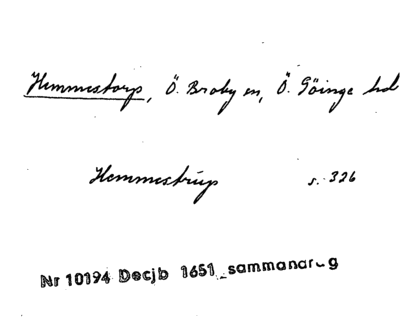 Hemmestorp, Ö. Broby sn, Ö. Göinge hd
Hemmestrup s. 326
Nr 10194 Decjb 1651 sammandrag